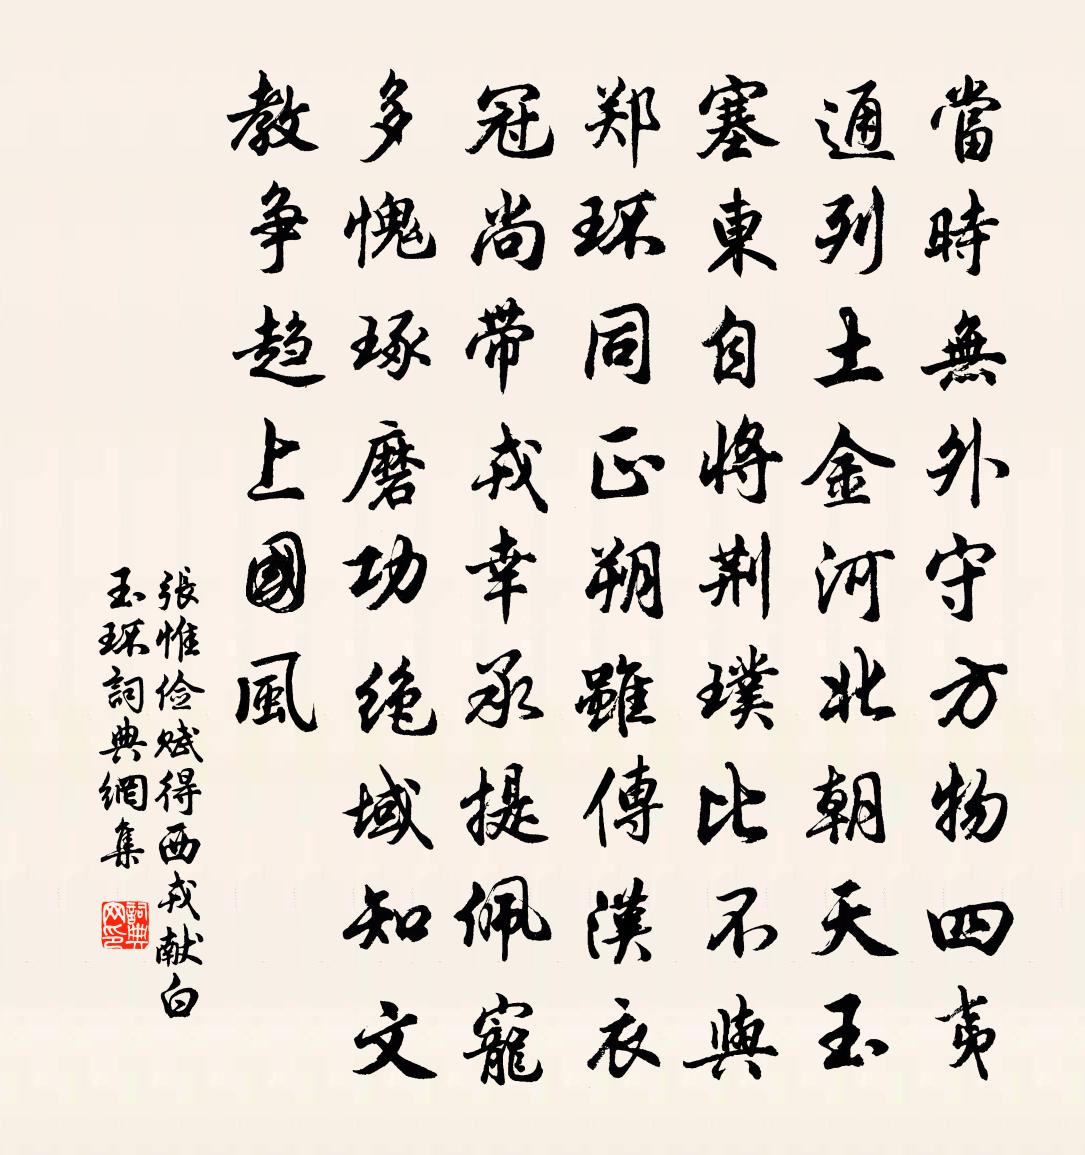 當時無外守方物四夷
通列土金河北朝天玉
塞東自將荆璞比不與
郑环同正朔雖傳漢衣
冠尚带戎幸承提佩寵
多愧琢磨功绝域知文
教争趋上國風
張惟俭赋得西戎献白
玉环詞典網集
詞典网印